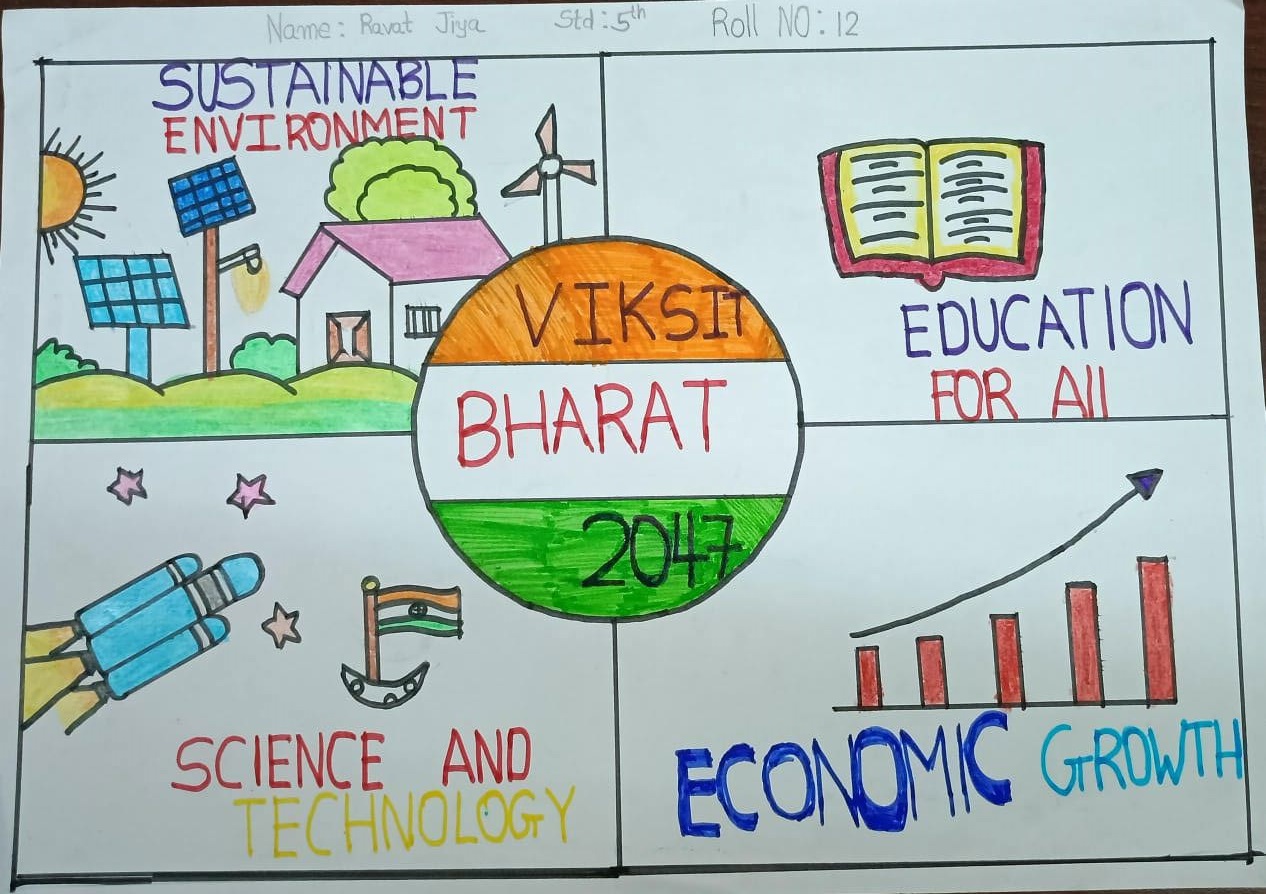 Name: Ravat Jiya Std: 5th Roll NO: 12
SUSTAINABLE
ENVIRONMENT
EDUCATION
FOR All
VIKSIT
BHARAT
2047
SCIENCE AND
TECHNOLOGY
ECONOMIC GROWTH